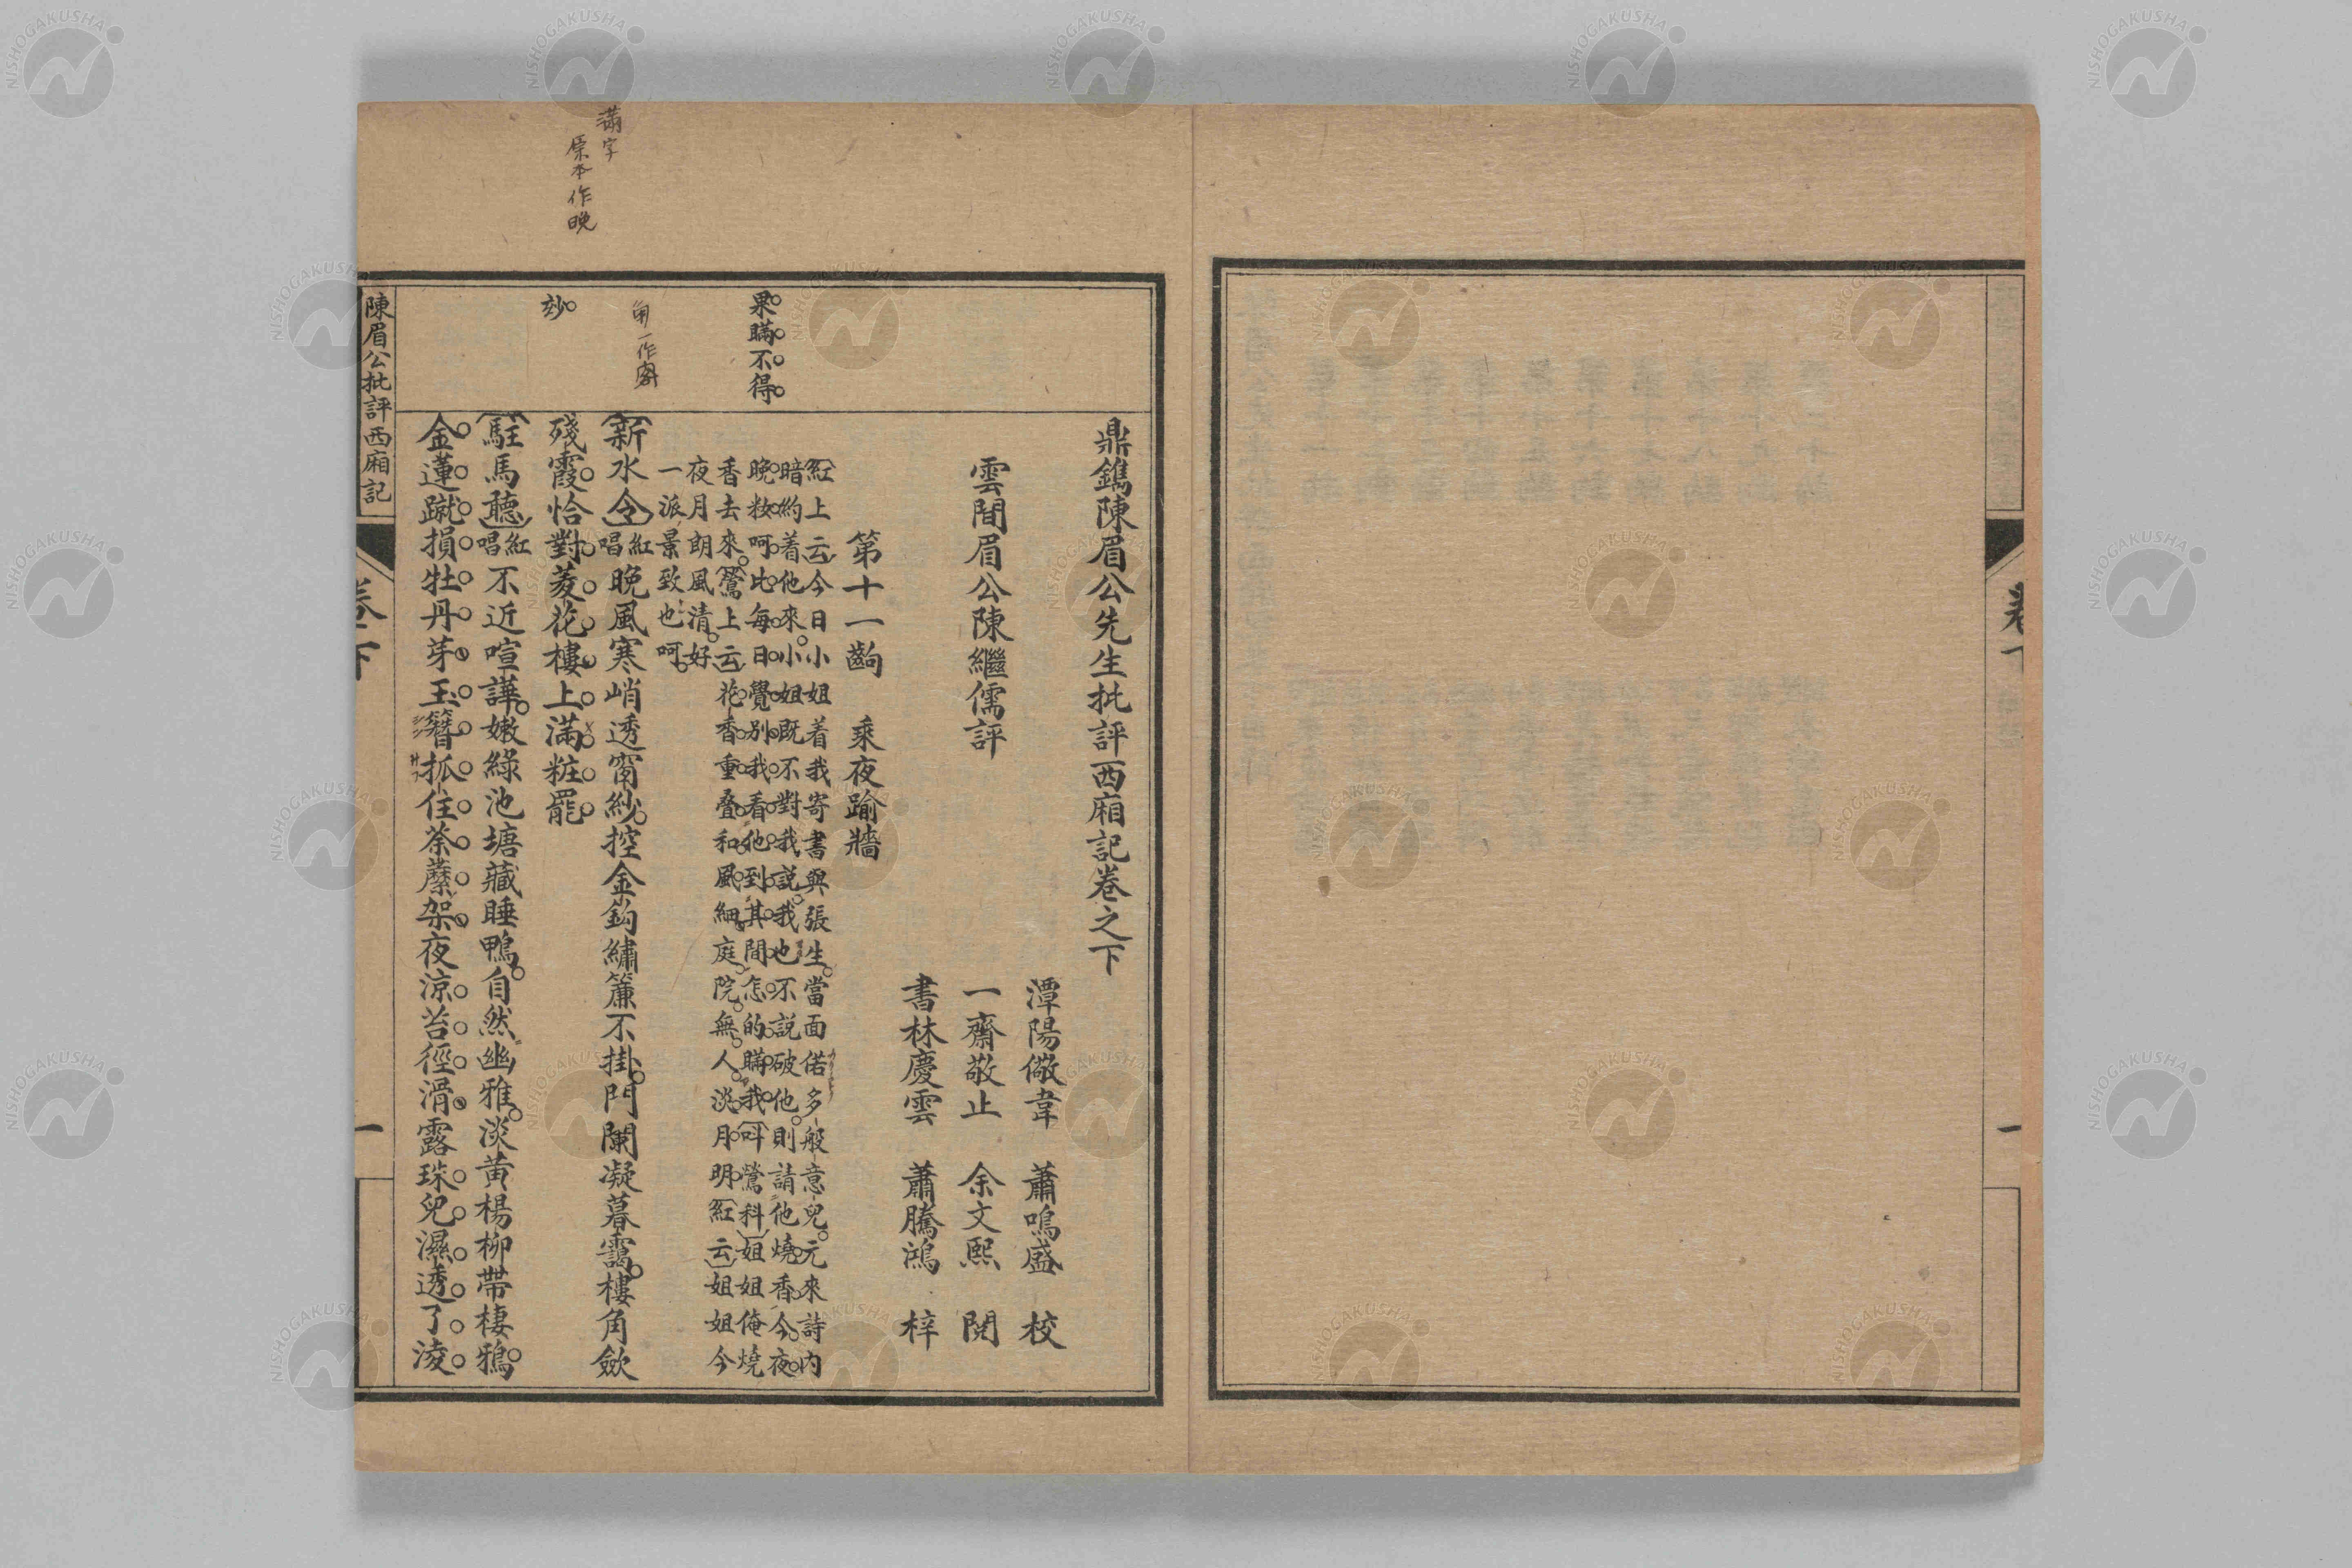 鼎鐫陳眉公先生批評西廂記卷之下
潭陽儆韋 蕭鳴盛 校
雲間眉公陳繼儒評 一齋敬止 余文熙 閱
書林慶雲 蕭騰鴻 梓
第十一齣 乘夜踰牆
紅上云今日小姐着我寄書與張生當面偌多般意兒元來詩內
暗約着他來小姐既不對我說我也不說破他則請他燒香今夜
晚粧呵比每日覺別我看他到其間怎的瞞我叫鶯科姐姐俺燒
香去來鶯上云花香重疊和風細庭院無人淡月明紅云姐姐今
夜月朗風清好
一派景致也呵
新水令紅唱晚風寒峭透窗紗控金鈎繡簾不掛門闌凝暮靄樓角歛
殘霞恰對菱花樓上滿粧罷
駐馬聽紅唱不近喧譁嫩綠池塘藏睡鴨自然幽雅淡黃楊柳帶棲鴉
金蓮蹴損牡丹芽玉簪抓住荼蘼架夜涼苔徑滑露珠兒濕透了淩
果瞞不得
角一作閣
玅
滿字
原本作晚
陳眉公批評西廂記
卷下
一
卷下
一
NISHOGAKUSHA